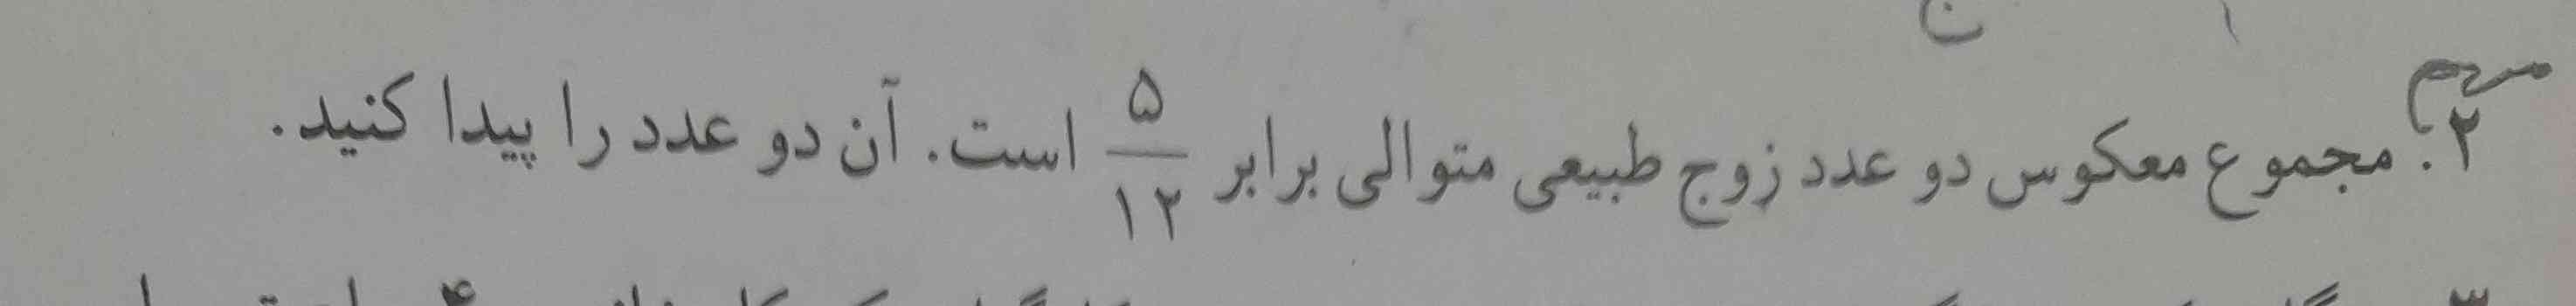 مهم
۲. مجموع معکوس دو عدد زوج طبیعی متوالی برابر ۵/۱۲ است. آن دو عدد را پیدا کنید.